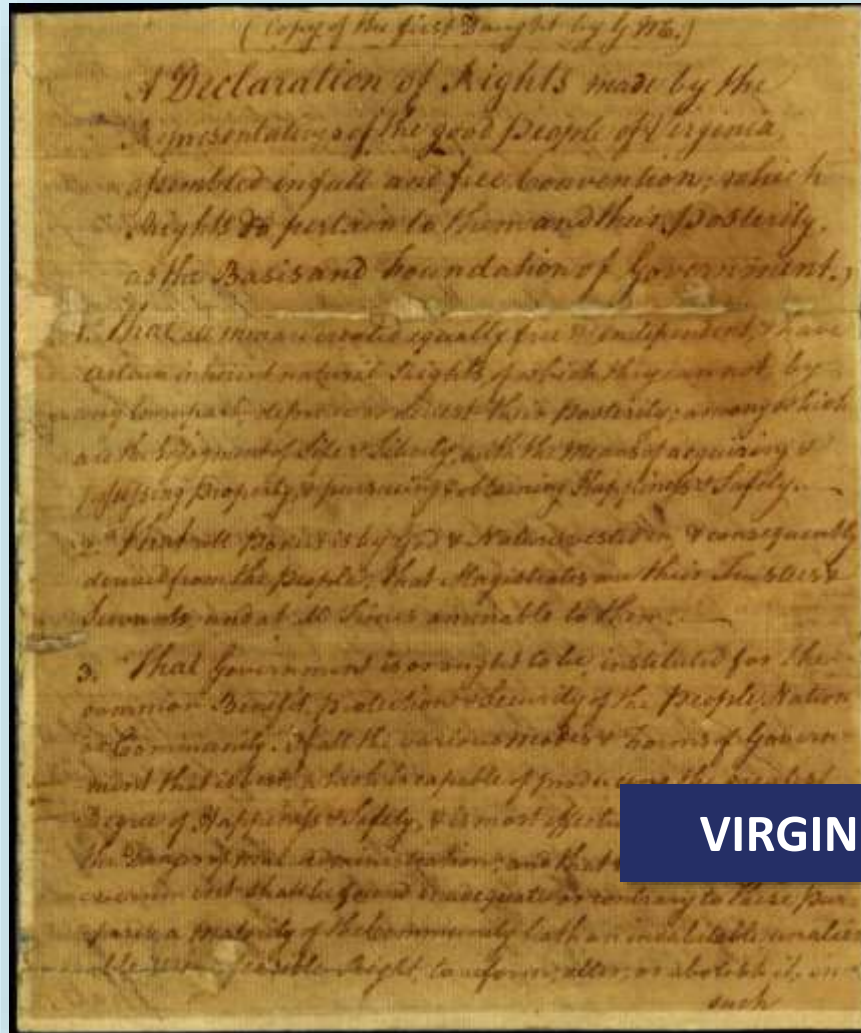 (Copy of the first Daught by G M.)
A Declaration of Rights made by the
Representatives of the good People of Virginia,
assembled in full and free Convention; which
Rights do pertain to them and their Posterity,
as the Basis and Foundation of Government.,
1. That all men are created equally free & independent, & have
certain inherent natural Rights, of which they can not, by
any Compact, deprive or divest their Posterity; among which
are the Enjoyment of Life & Liberty, with the Means of acquiring &
possessing Property, & pursueing & obtaining Happiness & Safety.
2. That all Power is by God & Nature vested in, & consequently
derived from the People; that Magistrates are their Trustees &
Servants, and at all Times amenable to them.
3. That Government is or ought to be, instituted for the
common Benefit, Protection & Security of the People, Nation
or Community. Of all the various modes & Forms of Govern-
ment that is best, which is capable of producing the greatest
Degree of Happiness & Safety, & is most effectu
the Danger of mal-administration; and that
vernment shall be found inadequate or contrary to these Pur-
poses, a Majority of the Community hath an indubitable, unalien-
able indefeasible Right, to reform, alter, or abolish it, in
such
VIRGIN